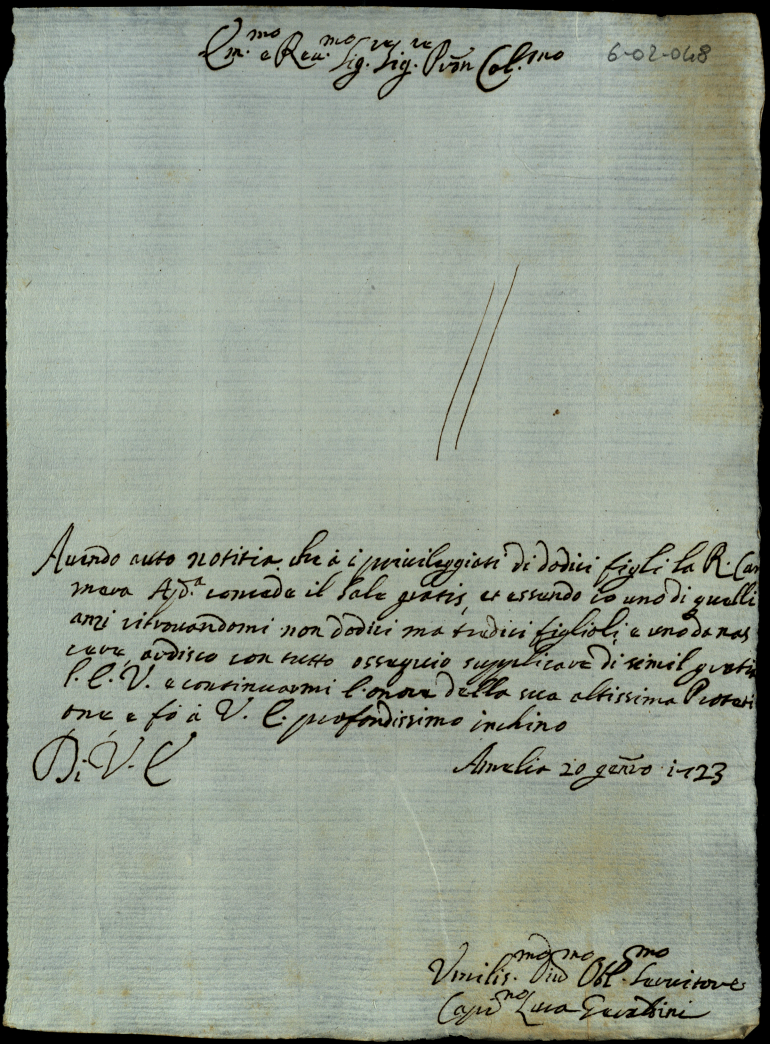 Em.mo e Reu.mo Sig.re Sig.re Pron Col.mo 6-02-048
Auendo auto notitia, che à i priuileggiati di dodici figli la R. Ca
mera Ap.a concede il sale gratis, et essendo io uno di quelli
anzi ritruuandomi non dodici ma tredici figlioli, e uno da nas
cere, ardisco con tutto ossequio supplicare di simil gratia
l'E. V. e continuarmi l'onore della sua altissima Protetti
one e fò à V. E. profondissimo inchino
Di V. E Amelia 20 gen.ro 1723
Vmilis.mo Diu.mo Obl.mo Seruitore
Cap.no Luca